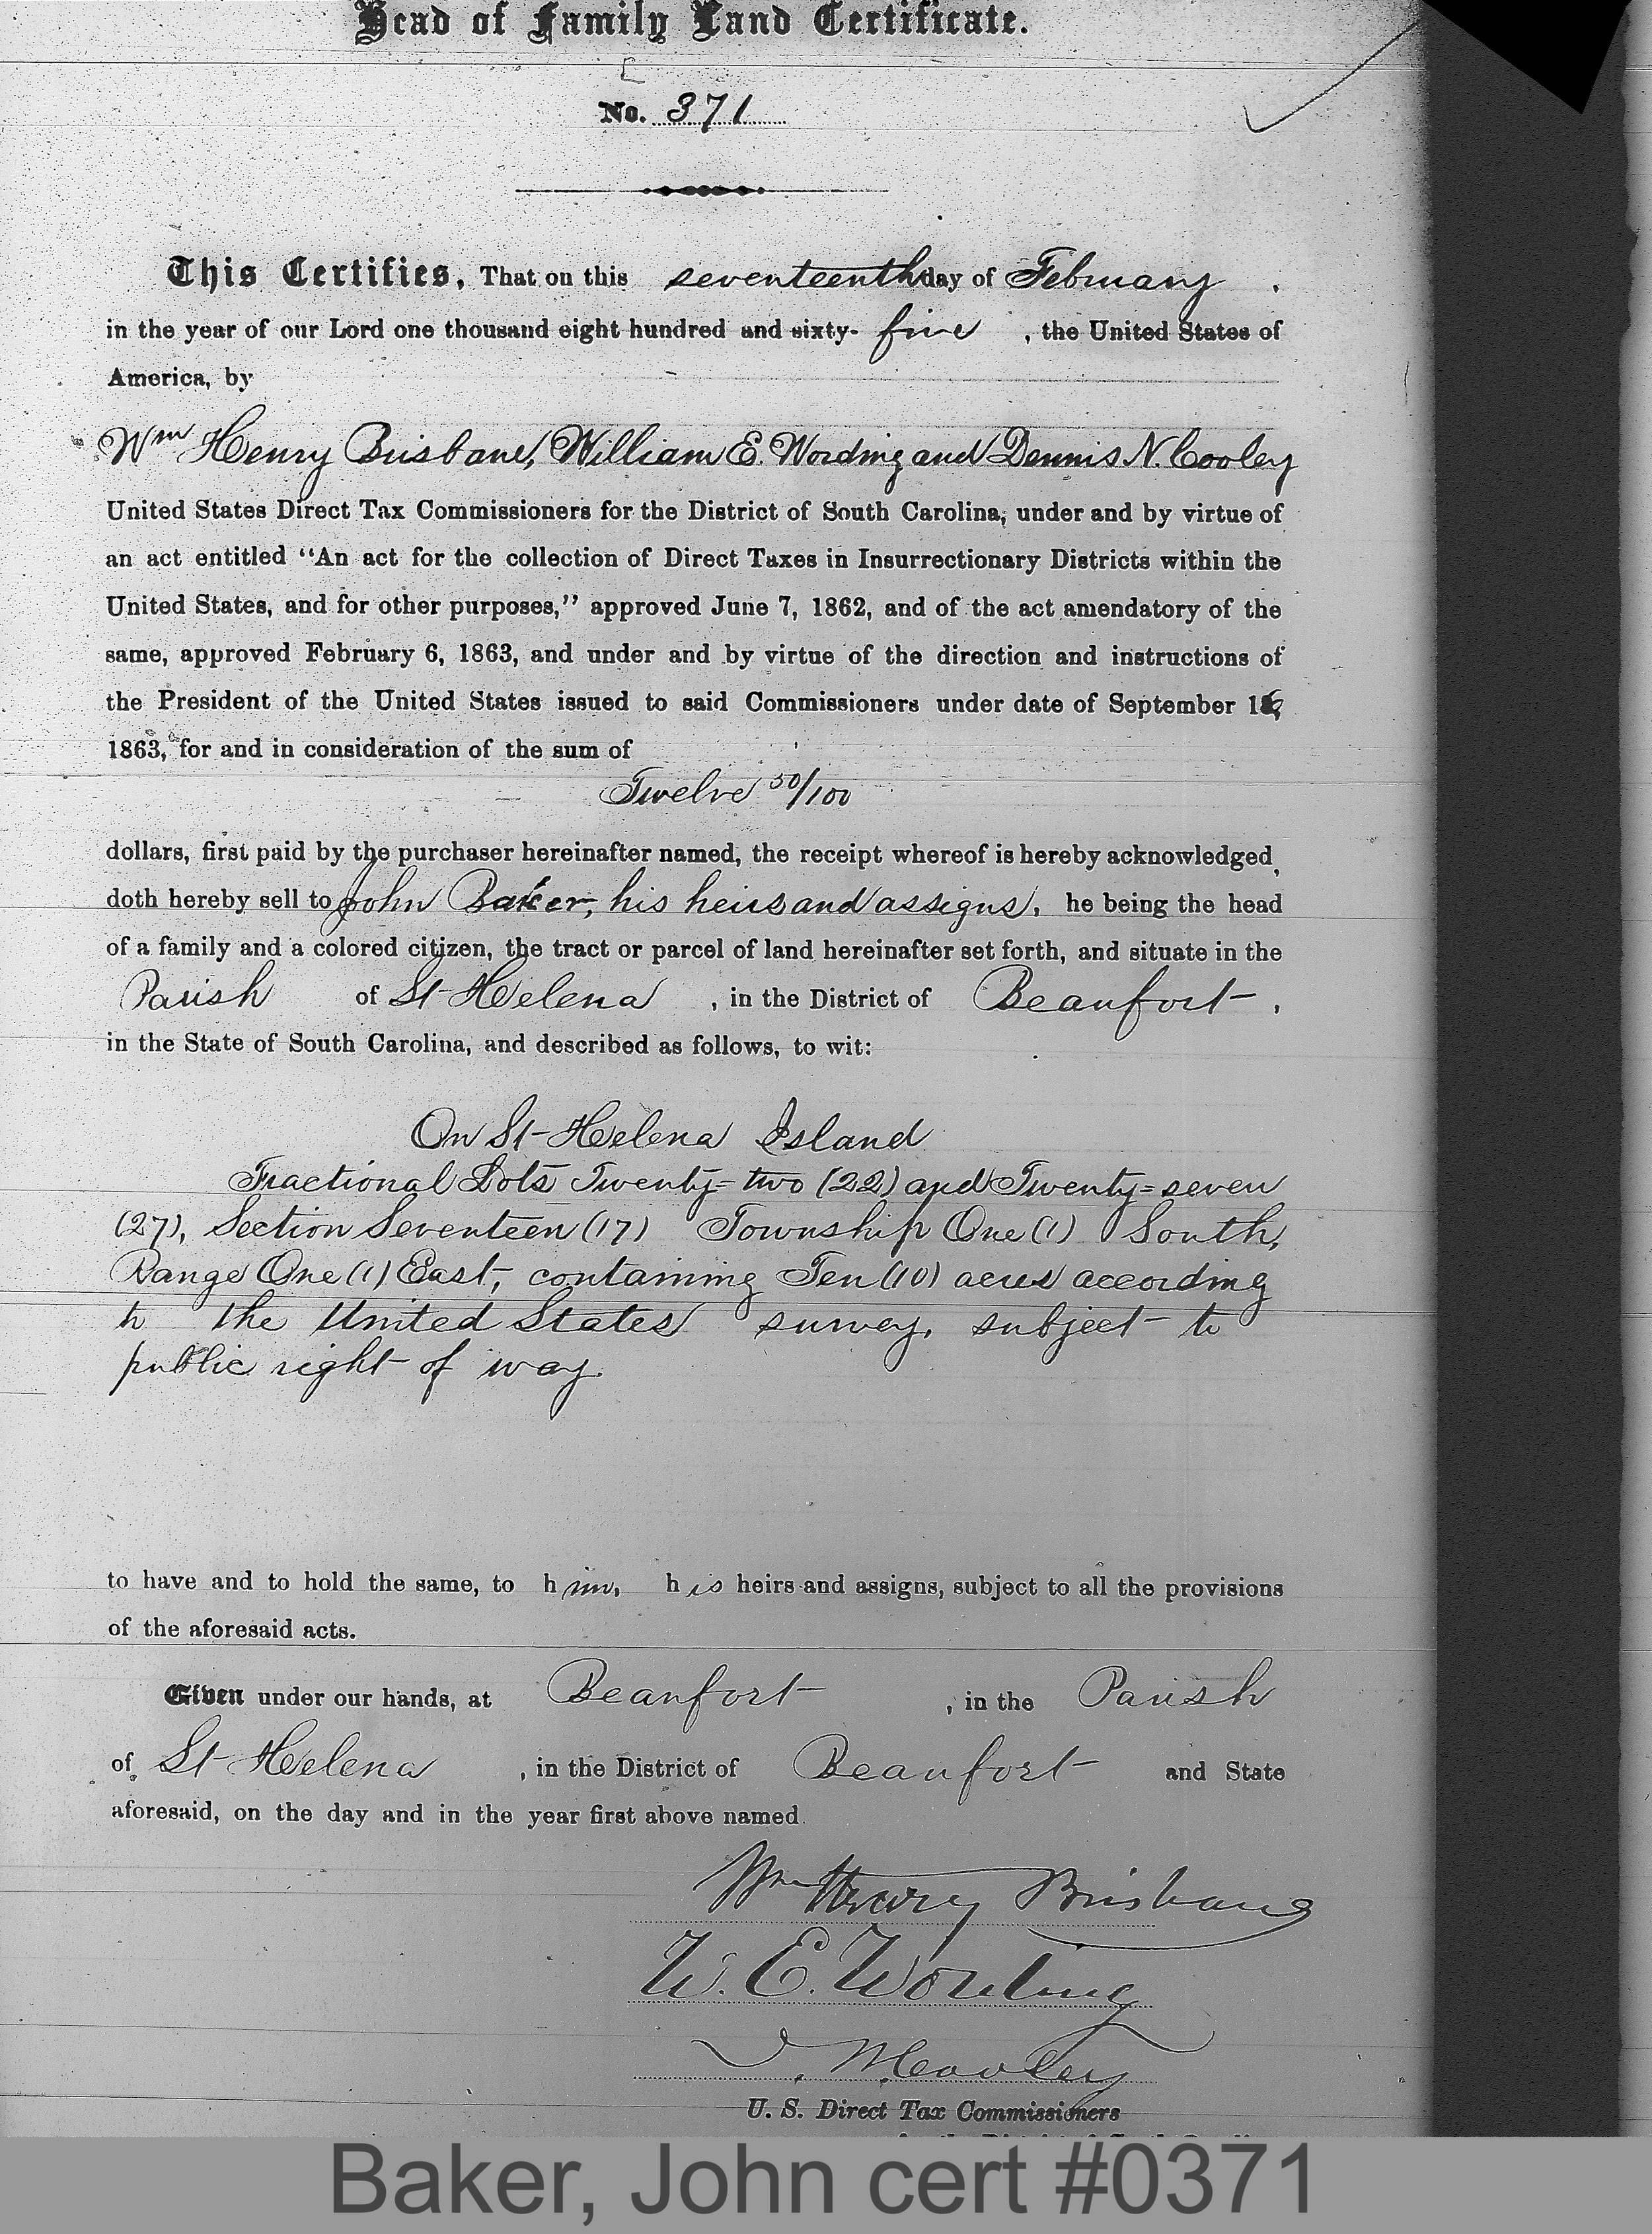 Head of Family Land Certificate.
No. 371
This Certifies, That on this seventeenth day of February .
in the year of our Lord one thousand eight hundred and sixty- five , the United States of
America, by
Wm Henry Brisbane, William E. Wording and Dennis N. Cooley
United States Direct Tax Commissioners for the District of South Carolina, under and by virtue of
an act entitled "An act for the collection of Direct Taxes in Insurrectionary Districts within the
United States, and for other purposes," approved June 7, 1862, and of the act amendatory of the
same, approved February 6, 1863, and under and by virtue of the direction and instructions of
the President of the United States issued to said Commissioners under date of September 16,
1863, for and in consideration of the sum of
Twelve 50/100
dollars, first paid by the purchaser hereinafter named, the receipt whereof is hereby acknowledged,
doth hereby sell to John Baker, his heirs and assigns, he being the head
of a family and a colored citizen, the tract or parcel of land hereinafter set forth, and situate in the
Parish of St Helena , in the District of Beaufort ,
in the State of South Carolina, and described as follows, to wit:
On St Helena Island
Fractional Lots Twenty=two (22) and Twenty=seven
(27), Section Seventeen (17) Township One (1) South,
Range One (1) East, containing Ten (10) acres according
to the United States survey, subject to
public right of way.
to have and to hold the same, to him, his heirs and assigns, subject to all the provisions
of the aforesaid acts.
Given under our hands, at Beaufort , in the Parish
of St Helena , in the District of Beaufort and State
aforesaid, on the day and in the year first above named.
Wm Henry Brisbane
W. E. Wording
D. N. Cooley
U. S. Direct Tax Commissioners
Baker, John cert #0371